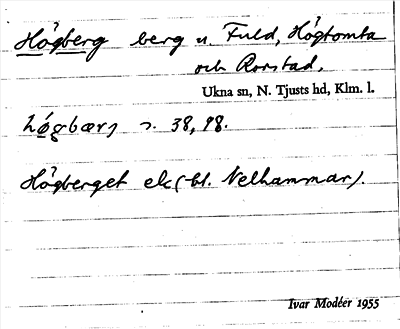 Högberg berg u. Fuld, Högtomta
och Rorstad.
Ukna sn, N. Tjusts hd, Klm. l.
høgbærj s. 38, 98.
Högberget ek (bl. Nelhammar).
Ivar Modéer 1955